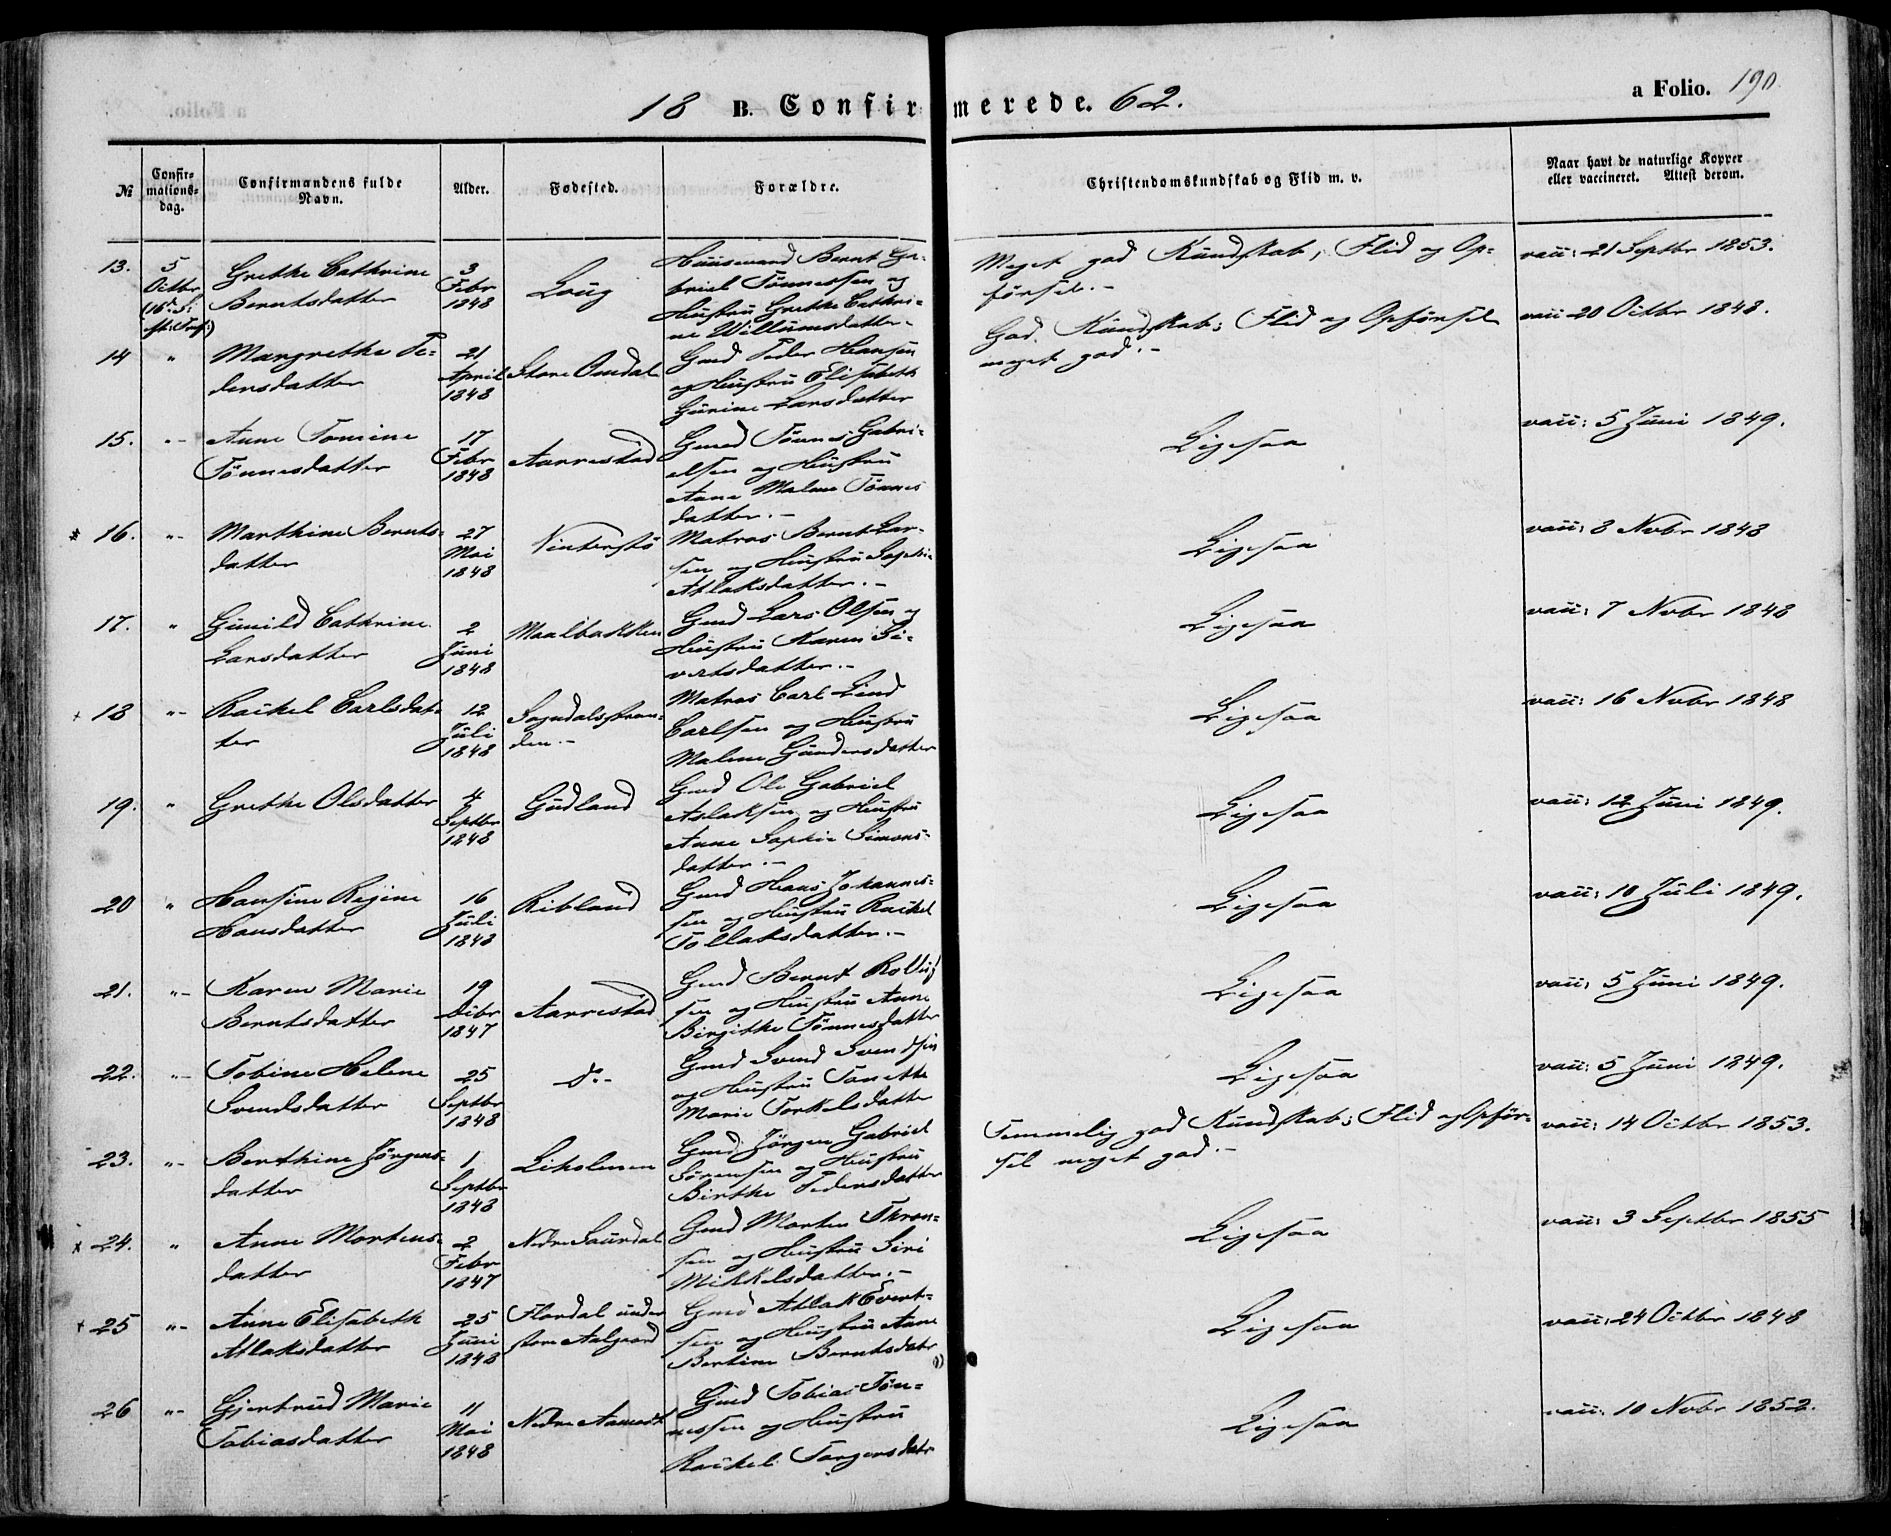 18 B. Confirmerede. 62.
a Folio. 190.
№
Confirmations-dag.
Confirmandens fulde Navn.
Alder.
Fødested.
Forældre.
Christendomskundskab og Flid m. v.
Naar havt de naturlige Kopper eller vaccineret. Attest derom.
13.
5 Octbr (16d. S. ft. Tref:)
Grethe Cathrine
Berntsdatter
3 Febr 1848
Loug
Huusmand Bernt Ga-
briel Tønnessen og
Hustru Grethe Cathri-
ne Willumsdatter.
Meget god Kundskab, Flid og Op-
førsel.-
vacc: 21 Septbr 1853.
14
"
Margrethe Pe-
dersdatter
21 April 1848
Store Omdal
Gmd Peder Hansen
og Hustru Elisabeth
Gurine Larsdatter
God Kundskab; Flid og Opførsel
meget god.-
vacc 20 Octbr 1848.
15.
"-
Anne Tomine
Tönnesdatter
17 Febr 1848
Aarrestad
Gmd Tönnes Gabri-
elsen og Hustru
Anne Malene Tönnes
datter.-
Ligesaa
vacc: 5 Juni 1849.
16.
"-
Marthine Bernts-
datter
27 Mai 1848
Vinterstö
Matros Bernt Lar-
sen og Hustru Sophie
Atlaksdatter.-
Ligesaa
vacc: 8 Novbr 1848
17.
"
Gunild Cathrine
Larsdatter
2 Juni 1848
Maalbakken
Gmd Lars Olsen og
Hustru Karen Si-
vertsdatter.-
Ligesaa
vacc: 7 Novbr 1848
+ 18
"-
Rachel Carlsdat-
ter
12 Juli 1848
Sogndalsstran-
den.-
Matros Carl Lind
Carlsen og Hustru
Malene Gundersdatter
Ligesaa
vacc: 16 Novbr 1848
19.
"
Grethe Olsdatter
4 Septbr 1848
Gudland
Gmd Ole Gabriel
Aslaksen og Hustru
Anne Sophie Simons-
datter.-
Ligesaa
vacc: 12 Juni 1849.
20
"
Hansine Regine
Hansdatter
16 Juli 1848
Ribland
Gmd Hans Johannes-
sen og Hustru Rachel
Tollaksdatter.-
Ligesaa
vacc: 10 Juli 1849.
21.
"-
Karen Marie
Berntsdatter
19 Decbr 1847
Aarrestad
Gmd Bernt Rolfs-
sen og Hustru Anne
Birgithe Tönnesdatter
Ligesaa
vacc: 5 Juni 1849.
22.
"-
Tobine Helene
Svendsdatter
25 Septbr 1848
do.-
Gmd Svend Svendsen
og Hustru Tonette
Marie Torkelsdatter
Ligesaa
vacc: 5 Juni 1849.
23.
"-
Berthine Jörgens-
datter
1 Septbr 1848
Liholmen
Gmd Jörgen Gabriel
Sörensen og Hustru
Birthe Pedersdatter
Temmelig god Kundskab; Flid og Opför-
sel meget god.-
vacc: 14 Octbr 1853.
x 24.
"
Anne Mortens-
datter
2 Febr 1847
Nedre Saurdal
Gmd Morten Thron-
sen og Hustru Siri
Mikkelsdatter.-
Ligesaa
vacc: 3 Septbr 1855
+ 25
"-
Anne Elisabeth
Atlaksdatter
25 Juni 1848
Flordal under
store Aalgaard
Gmd Atlak Evert-
sen og Hustru Ane
Bertine Berntsdatr
Ligesaa
vacc: 24 Octbr 1848
26
"-
Gjertrud Marie
Tobiasdatter
11 Mai 1848
Nedre Aamodt
Gmd Tobias Tön-
nessen og Hustru
Rachel Torgersdatr
Ligesaa
vacc: 10 Novbr 1852.